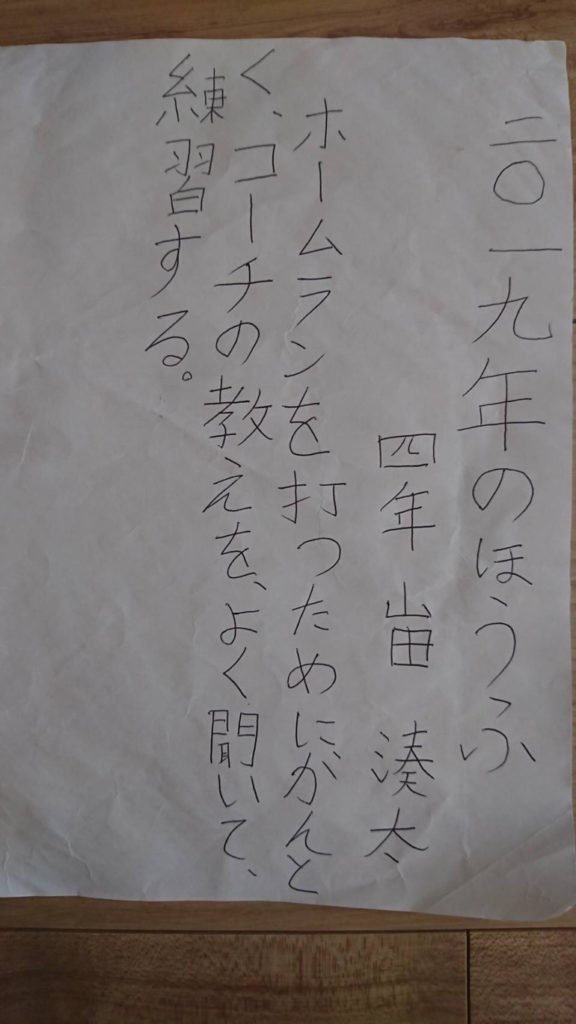 二〇一九年のほうふ
四年 山田 湊太
ホームランを打つためにがんと
く、コーチの教えを、よく聞いて、
練習する。